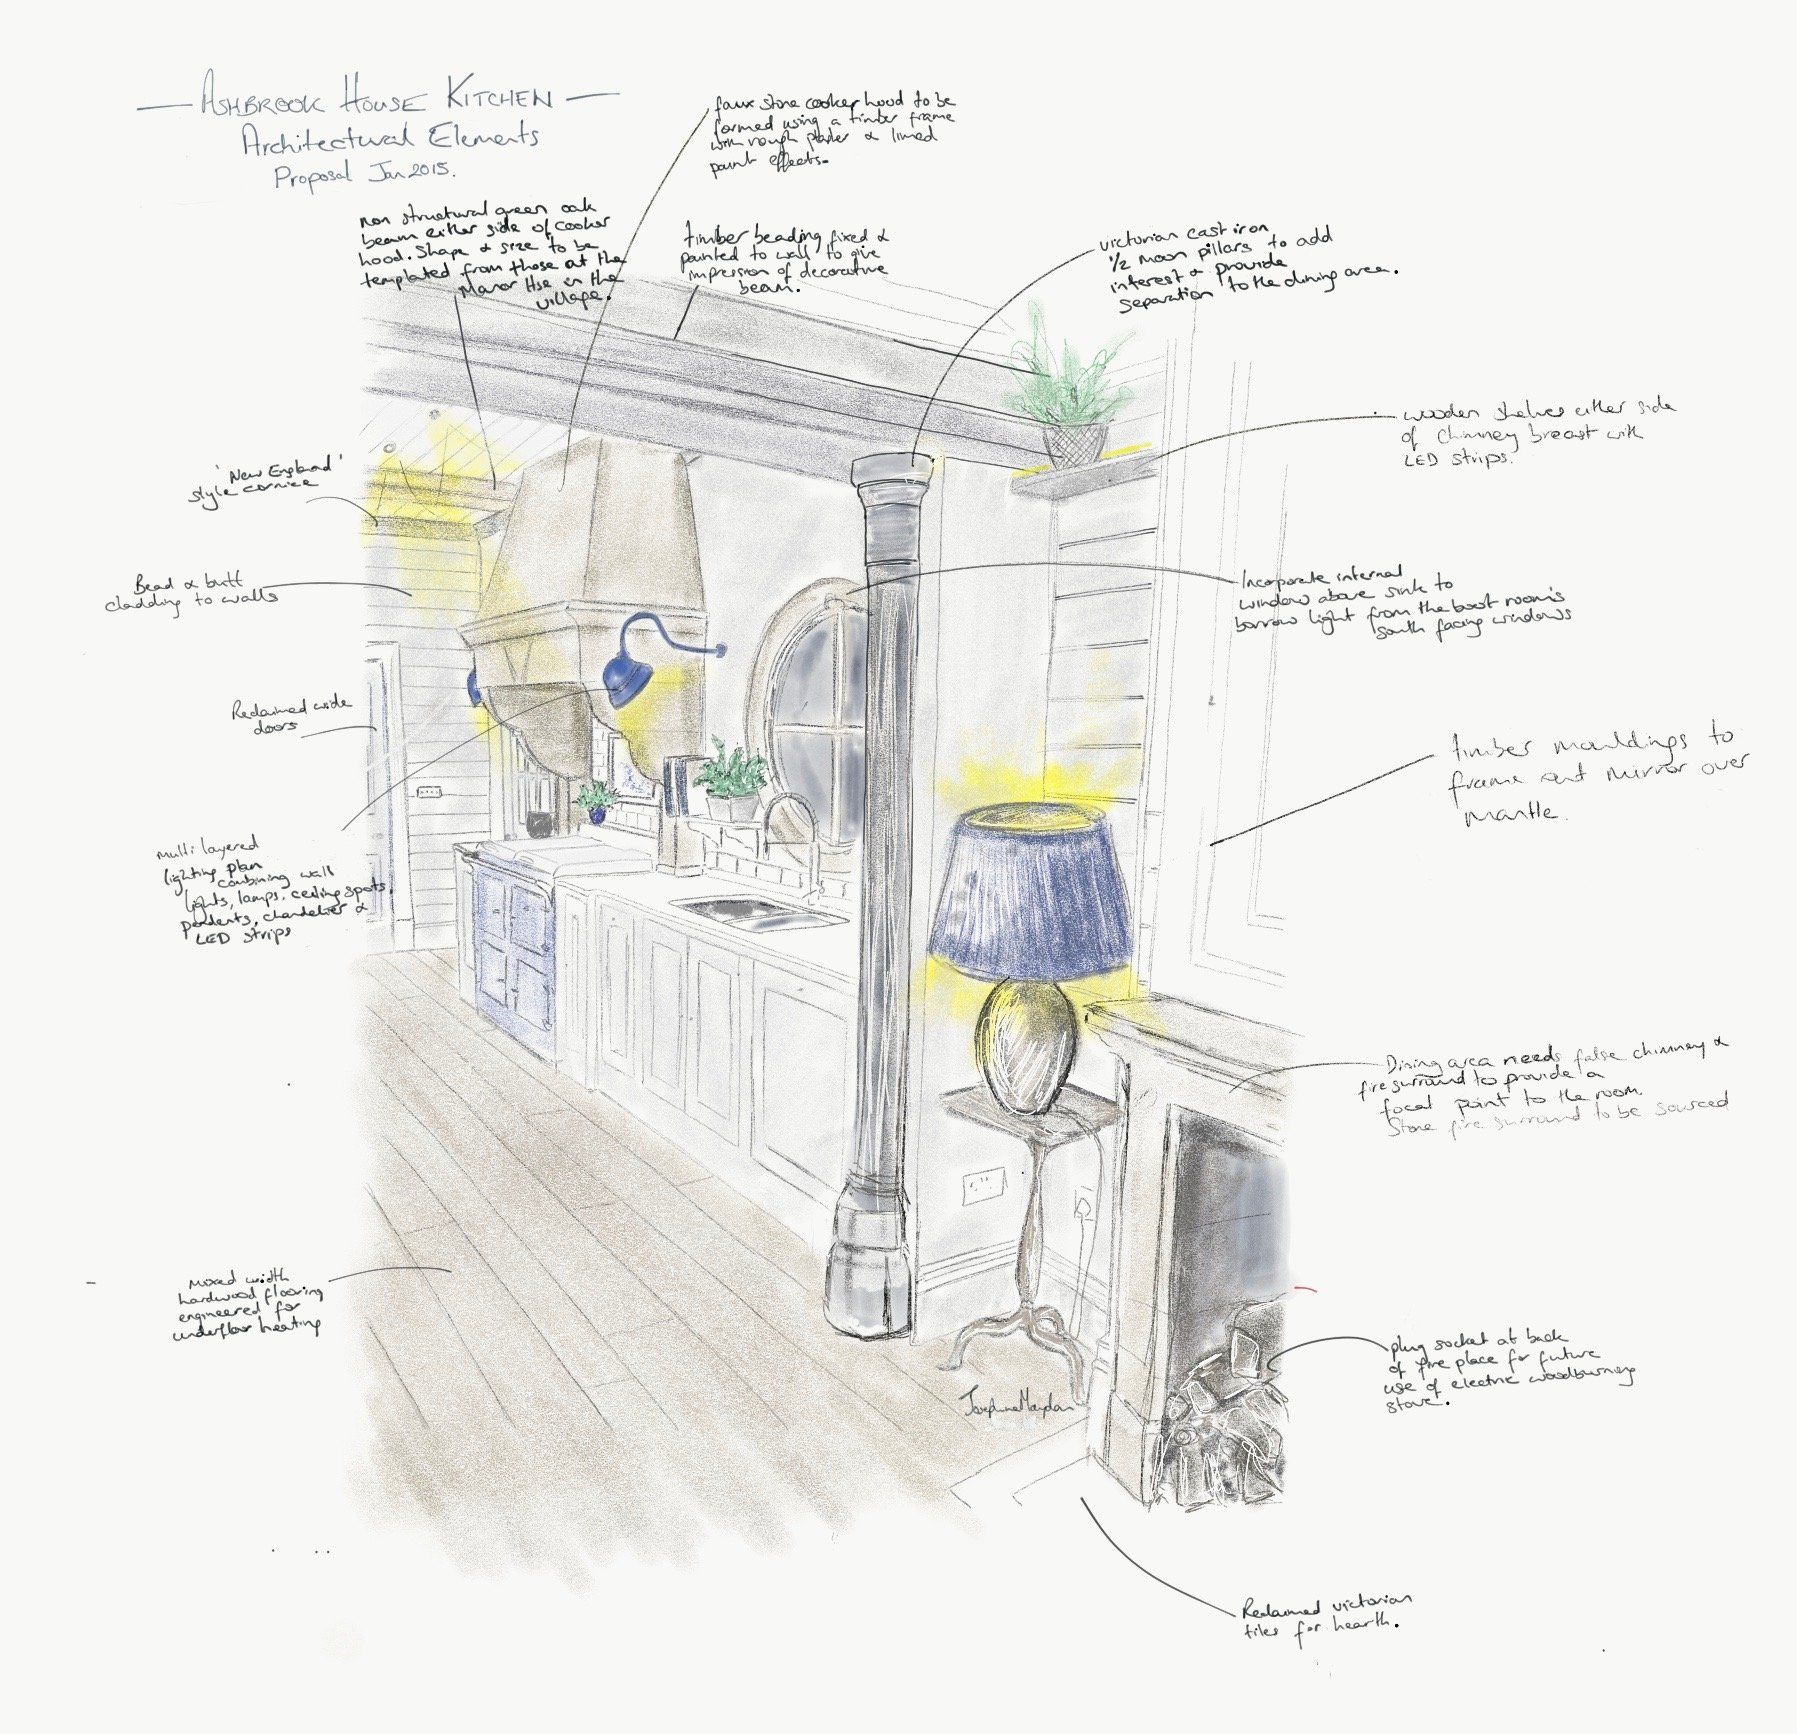 — ASHBROOK HOUSE KITCHEN —
Architectural Elements
Proposal Jan 2015.
faux stone cooker hood to be
formed using a timber frame
with rough plaster & limed
paint effects.
non structural green oak
beam either side of cooker
hood. Shape & size to be
templated from those at the
Manor Hse in the
village.
timber beading fixed &
painted to wall to give
impression of decorative
beam.
victorian cast iron
1/2 moon pillars to add
interest & provide
separation to the dining area.
wooden shelves either side
of chimney breast with
LED strips.
'New England'
style cornice
Bead & butt
cladding to walls
Incorporate internal
window above sink to
borrow light from the boot room's
south facing windows
Reclaimed wide
doors
timber mouldings to
frame out mirror over
mantle.
multi layered
lighting plan
combining wall
lights, lamps, ceiling spots,
pendents, chandelier &
LED strips
Dining area needs false chimney &
fire surround to provide a
focal point to the room
Stone fire surround to be sourced
mixed width
hardwood flooring
engineered for
underfloor heating
plug socket at back
of fire place for future
use of electric woodburning
stove.
Reclaimed victorian
tiles for hearth.